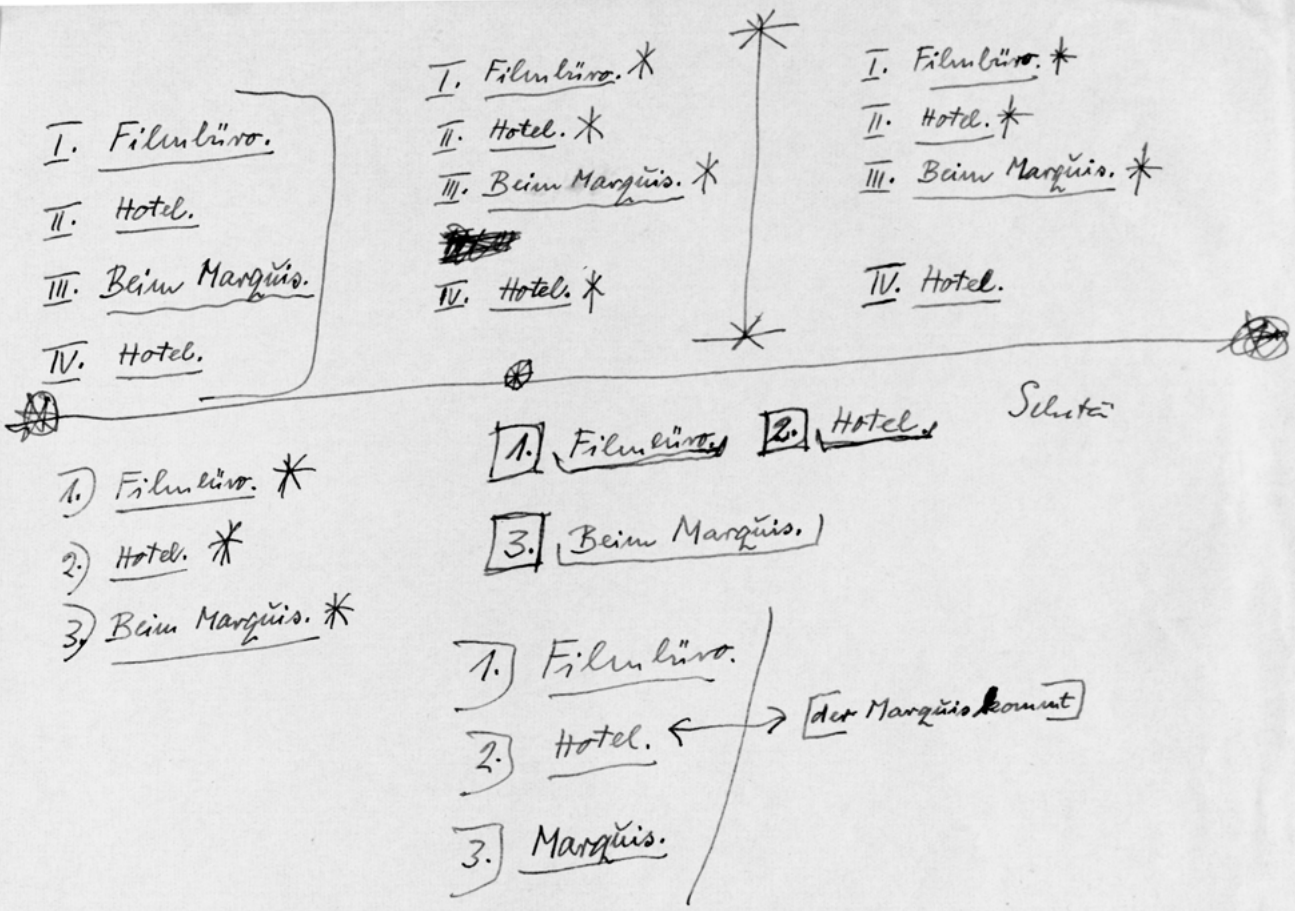 I. Filmbüro.
II. Hotel.
III. Beim Marquis.
IV. Hotel.
I. Filmbüro. *
II. Hotel. *
III. Beim Marquis. *
IV. Hotel. *
I. Filmbüro. *
II. Hotel. *
III. Beim Marquis. *
IV. Hotel.
1.) Filmbüro. *
2.) Hotel. *
3.) Beim Marquis. *
1. Filmbüro. 2. Hotel.
3. Beim Marquis.
1.) Filmbüro.
2.) Hotel. ↔ [der Marquis kommt]
3.) Marquis.